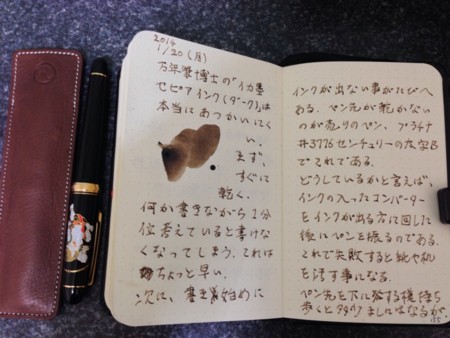 2014
1/20(月)
万年筆博士のイカ墨
セピアインク(ダーク)は
本当にあつかいにく
い。
まず、
すぐに
乾く。
何か書きながら1分
位考えていると書けな
くなってしまう。これは
ちょっと早い。
次に、書き始めに
インクが出ない事がたび〱
ある。ペン先が乾かない
のが売りのペン、プラチナ
#3776センチュリーの太字B
でこれである。
どうしているかと言えば、
インクの入ったコンバーター
をインクが出る方に回した
後にペンを振るのである。
これで失敗すると紙や机
を汚す事になる。
ペン先を下に する様持ち
歩くと ましにはなるが